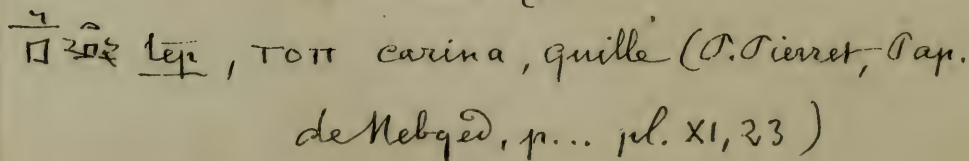 tep, ⲧⲟⲡ carina, quille (P. Pierret, Pap.
de Nebqed, p... pl. XI, 23)